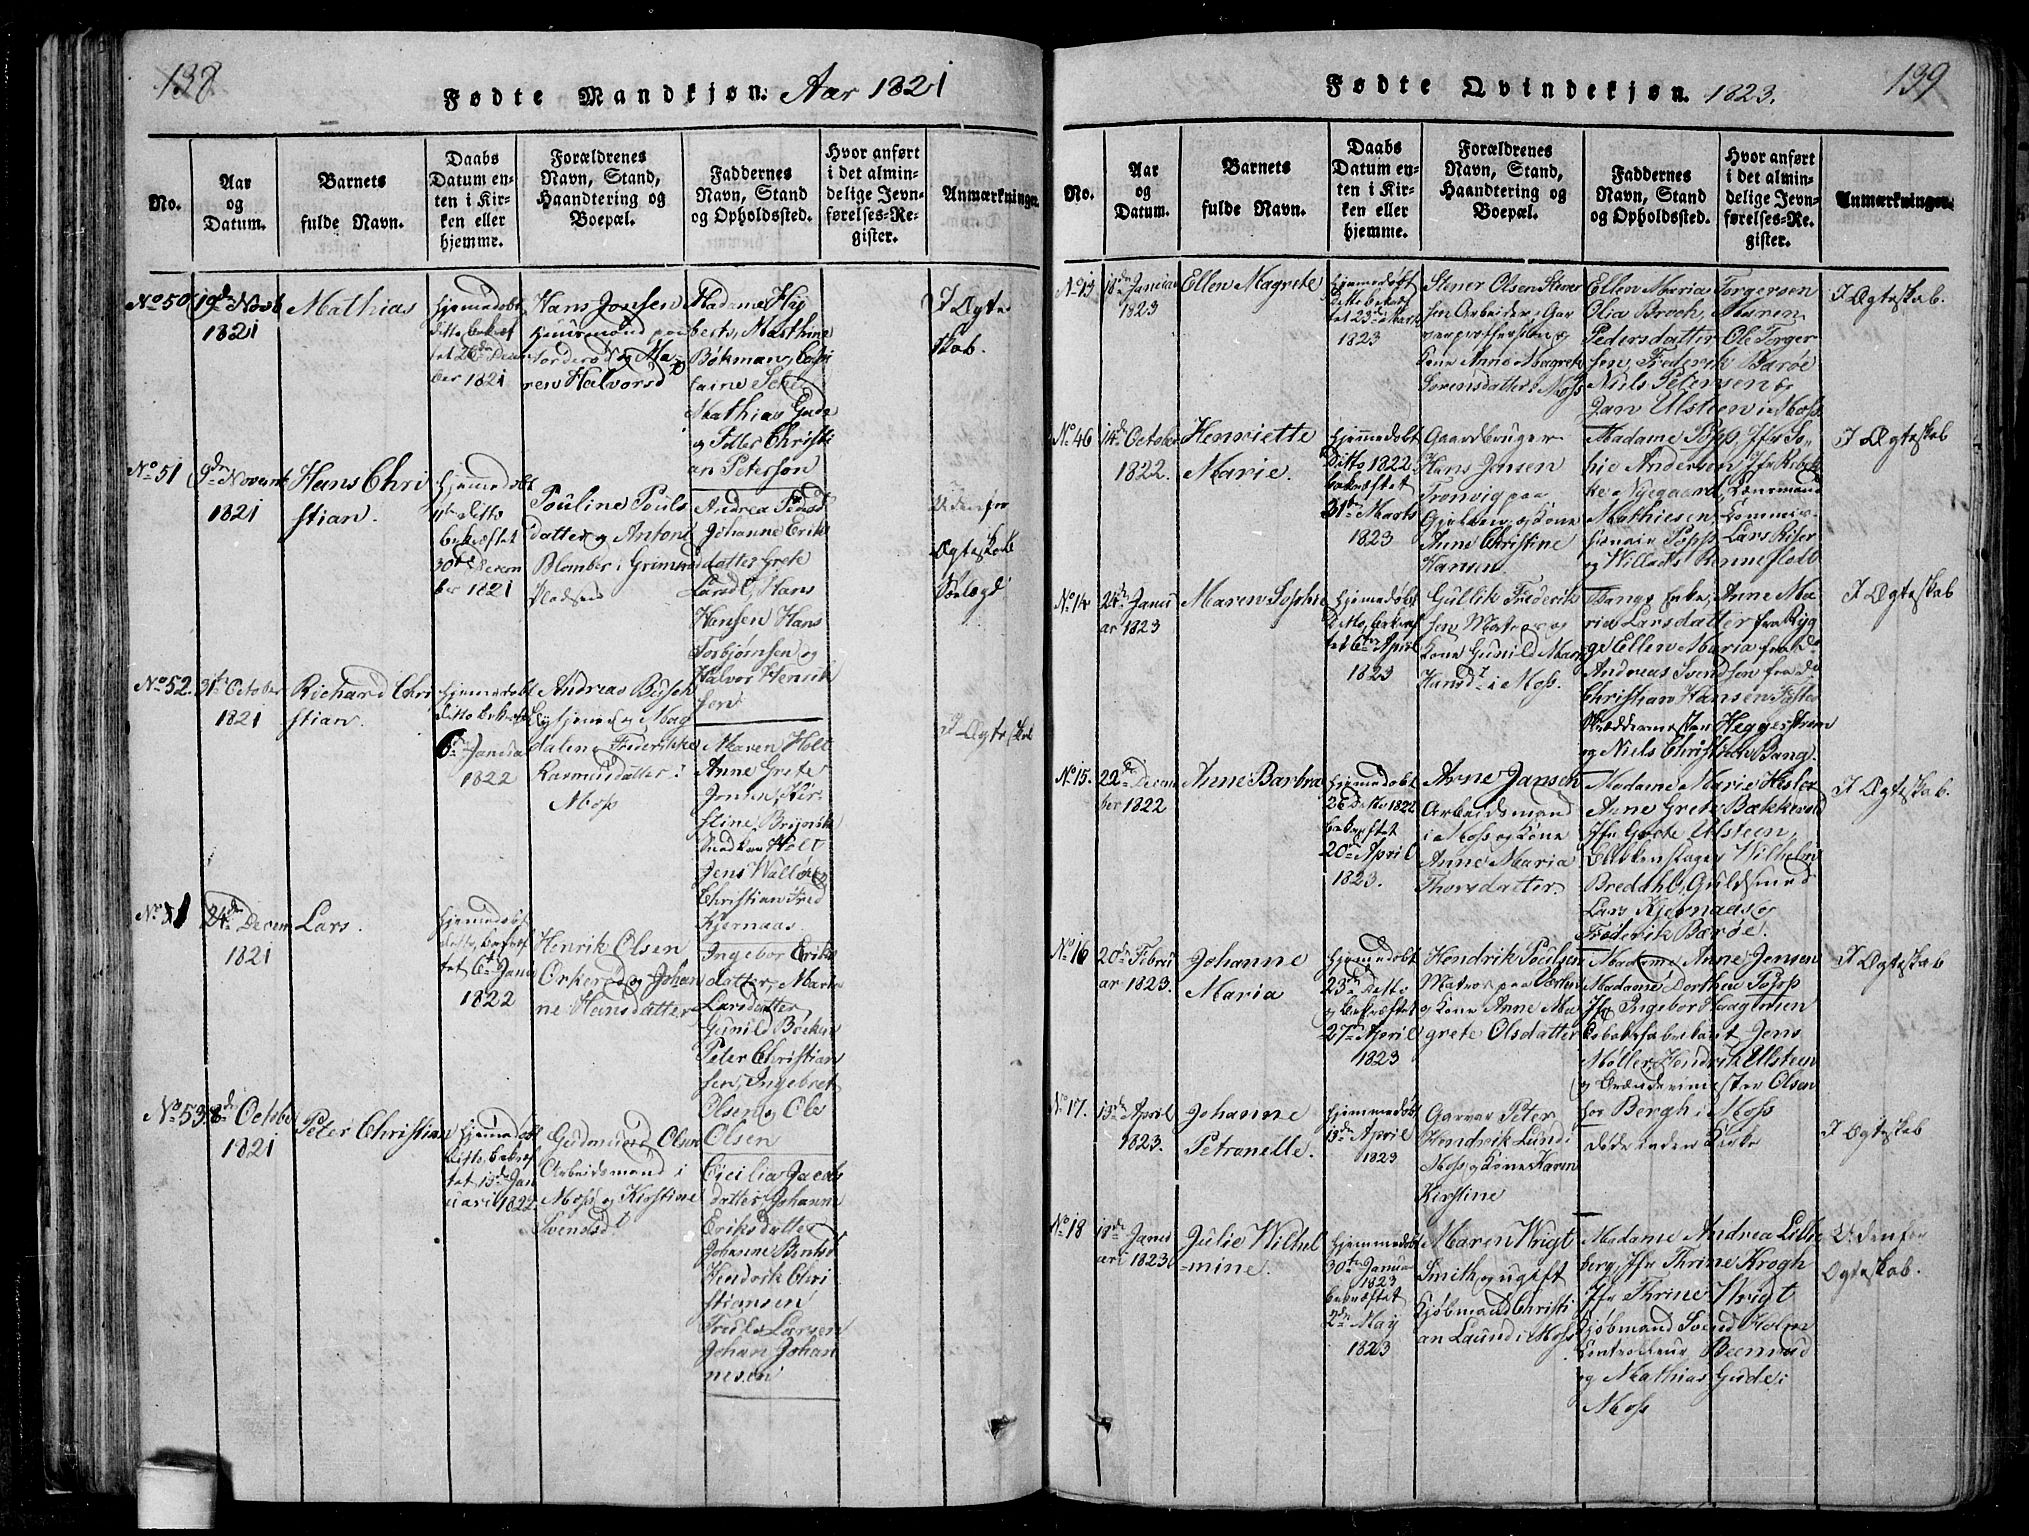 138
Fødte Mandkjøn. Aar 1821
No.
Aar
og
Datum.
Barnets
fulde Navn.
Daabs
Datum en-
ten i Kir-
ken eller
hjemme.
Forældrenes
Navn, Stand,
Haandtering og
Boepæl.
Faddernes
Navn, Stand
og Opholdssted.
Hvor anført
i det almin-
delige Jevn-
førelses-Re-
gister.
Anmærkninger.
No 50
19de Novb
1821
Mathias
hjemedøbt
ditto, bekræf
tet 26de Decem
ber 1821
Hans Jonsen
Huusmand paa
Torderød og Ma-
ren Halvorsd
Madame Høy
berts, Mathine
Bøkman,
Mathias Gude
og Peter Christi
an Peterson
I Ægte
skab.
No 51
9de Novemb
1821
Hans Chri
stian.
hjemmedøbt
11te ditto
bekræftet
30te Decem
ber 1821
Pouline Pouls
datter og Antoni
Blomber i Grimsrød
Pladsen
Andrea
Johanne Eriks
datter Grete
Larsd, Hans
Hansen Hans
Torbjørnsen og
Halvor Henrik
sen
Udenfor
Ægteskab
No 52.
31te October
1821
Richard Chri
stian.
hjemmedøbt
ditto bekræft
6te Janua
1822
Andreas Busch
og Mag
dalene Frederikke
Rasmusdatter i
Moss
Maren Holt
Anne Grete
Jensen, Kir
stine
Snedker Holt
Jens Walløe
Christian Fred
Kjernaas
I Ægteskab
No 51
24de Decem
1821
Lars.
hjemmedøbt
ditto, bekræf
tet 6te Janu
1822
Henrik Olsen
Orkerød og Johan
ne Hansdatter
Ingebor Eriks
datter, Marie
Larsdatter,
Gunild
Peter Christian
sen, Ingebret
Olsen og Ole
Olsen
No 53
8de Octobr
1821
Peter Christian
hjemmedøbt
ditto, bekræf
tet 13de Jan
uari 1822
Gudmund Olsen
Arbeidsmand i
Moss og Kirstine
Svendsd
Cicilia Jacobs
datter Johanne
Eriksdatter
Johanne Berntsd
Hendrik Chri
stiansen
Fredk Larsen
Johan Johan
nesen
Fødte Qvindekjøn. 1823.
139
No.
Aar
og
Datum.
Barnets
fulde Navn.
Daabs
Datum en-
ten i Kir-
ken eller
hjemme.
Forældrenes
Navn, Stand,
Haandtering og
Boepæl.
Faddernes
Navn, Stand
og Opholdssted.
Hvor anført
i det almin-
delige Jevn-
førelses-Re-
gister.
Anmærkninger.
No 13
18de Januar
1823
Ellen Magrete
hjemmedøbt
ditto bekræf
tet 23de Marts
1823
Stener Olsen
Arbeider
og
Kone Anne Magrete
Sørensdatter i Moss
Ellen Maria Torgersen
Olia Broch, Maren
Pedersdatter Ole Torger
sen, Frederik Barøe
Niels Petersen og
Jan Ulsteen i Moss
I Ægteskab.
No 46
14de October
1822.
Henriette
Marie.
hjemmedøbt
ditto 1822
bekræftet
31te Marts
1823
Gaardbruger
Hans Jensen
Tronvig paa
Gjelten og Kone
Anne Christine
Hansen
Madame Popp, Jfr So-
phie Andersen Jfr Rebek
ke Nyegaard, Lænsmand
Mathiesen, Commis-
sionair Popp Lars Riser
og Willads Renneflodt
I Ægteskab
No 14
24de Janu
ar 1823
Maren Sophie
hjemmedøbt
ditto, bekræf
tet 6te April
1823
Gullik Frederik
sen Matros og
Kone Gunild Marie
Hansd i Moss.
Bangs Enke, Anne Ma
ria Larsdatter fra Ryg
ge Ellen Maria fra do
Andreas Svendsen fra do
Christian Hansen
Skræddermester Heggestrøm
og Niels Christian Bang.
I Ægteskab
No 15.
22de Decem
ber 1822
Anne Barbra
hjemmedøbt
26 Decbr 1822
bekræftet
20de April
1823.
Arne Jansen
Arbeidsmand
i Moss og Kone
Anne Maria
Thorsdatter.
Madame Marie Hesler
Anne Grete Bækkevold
Jfr Grete Ulsteen,
Wilhelm
Bredahl, Guldsmed
Lars Kjernaas og
Frederik Barøe.
I Ægteskab.
No 16
20de Febru
ar 1823.
Johanne
Maria
hjemmedøbt
23de ditto
og bekræftet
27de April
1823
Hendrik Poulsen
Matros paa Værlen
og Kone Anne Ma
grete Olsdatter
Madame Anne Jensen
Madame Dorthea Popp
Jfr Ingebor Haagensen
Tobaksfabrikant Jens
Møller, Hendrik Ulsteen
og Brændevinmester Olsen
hos Bergh i Moss
I Ægteskab
No 17.
13de April
1823.
Johanne
Petronelle.
hjemmedøbt
13de April
1823
Garver Peter
Hendrik Lund i
Moss og Kone Karen
Kirstine
Døde inden Kirke
I Ægteskab
No 18
18de Janu
ari 1823
Julie Wilhel
mine.
hjemmedøbt
30te Januar
1823
bekræftet
2de May
1823
Maren Wrigt
Smith og ugift
Kjøbmand Christi
an Laurd i Moss
Madame Andrea Lillie
berg, Jfr Thrine Krogh
Jfr Thrine Wrigt
Kjøbmand Svend Holm
Controlleur
og Mathias Gude i
Moss
Udenfor
Ægteskab.